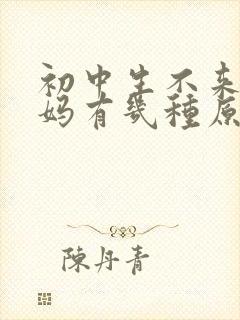 初中生不来
妈有几種原
陳丹青